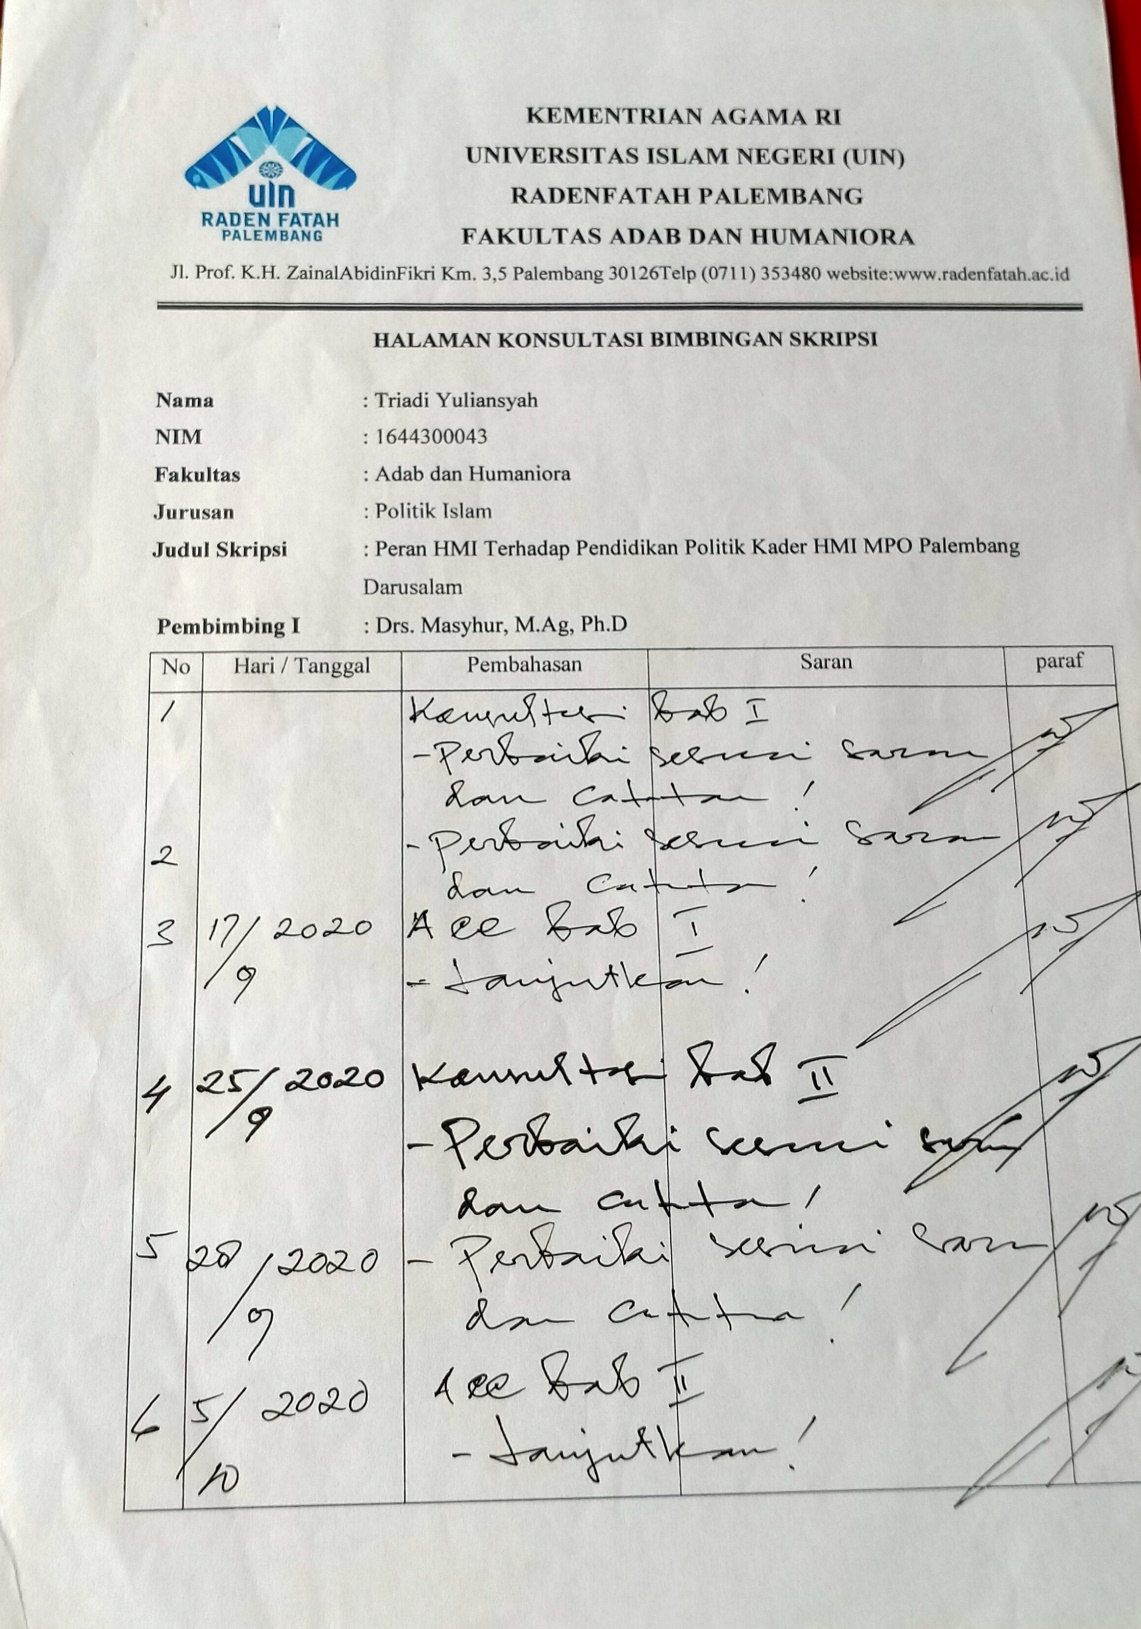 KEMENTRIAN AGAMA RI
UNIVERSITAS ISLAM NEGERI (UIN)
RADENFATAH PALEMBANG
FAKULTAS ADAB DAN HUMANIORA
uin
RADEN FATAH
PALEMBANG
Jl. Prof. K.H. ZainalAbidinFikri Km. 3,5 Palembang 30126Telp (0711) 353480 website:www.radenfatah.ac.id
HALAMAN KONSULTASI BIMBINGAN SKRIPSI
Nama : Triadi Yuliansyah
NIM : 1644300043
Fakultas : Adab dan Humaniora
Jurusan : Politik Islam
Judul Skripsi : Peran HMI Terhadap Pendidikan Politik Kader HMI MPO Palembang
Darusalam
Pembimbing I : Drs. Masyhur, M.Ag, Ph.D
No Hari / Tanggal Pembahasan Saran paraf
1 Konsultasi Bab I
- Perbaiki sesuai saran
dan catatan !
2 - Perbaiki sesuai saran
dan catatan !
3 17/9 2020 Acc Bab I
- Lanjutkan !
4 25/9 2020 Konsultasi Bab II
- Perbaiki sesuai saran
dan catatan !
5 28/9 2020 - Perbaiki sesuai saran
dan catatan !
6 5/10 2020 Acc Bab II
- Lanjutkan !